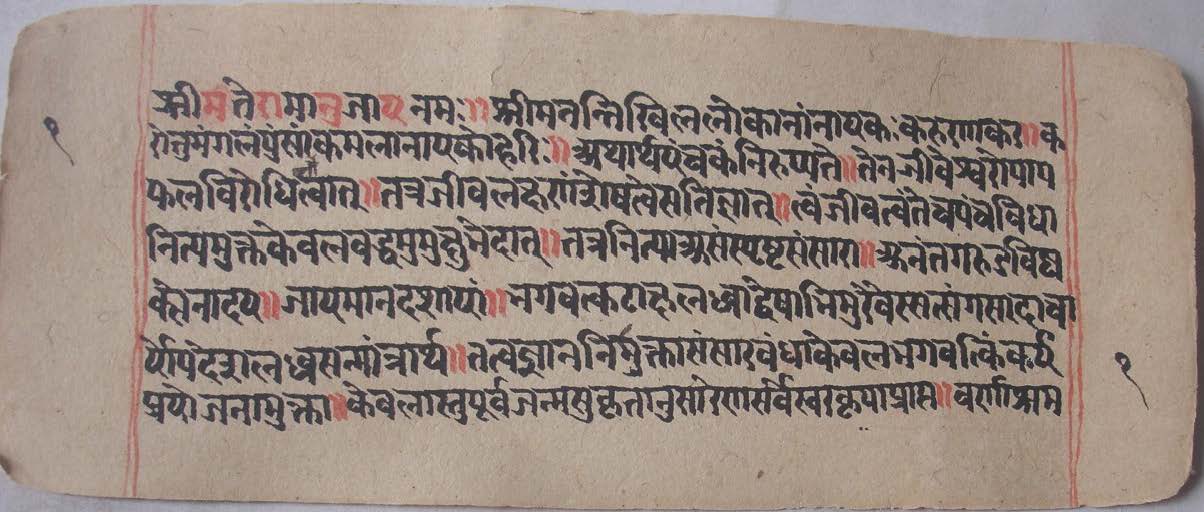 श्रीमतेरामानुजायनमः॥श्रीमतनन्तिखिललोकानांनायकःकरुणाकर॥क
रोतुमंगलंपुंसांकमलानायकोहरिः॥अथार्थपंचकंनिरुप्यते॥तेनजीवेश्वरोपाय
फलविरोधित्वात्॥तत्रजीवलक्षणंशेषत्वंसतिज्ञात्॥त्वंजीवत्वंतेचपंचविधा
नित्यमुक्तकेवलबद्धमुमुक्षुभेदात्॥तत्रनित्याअसंस्पृष्टसंसारा॥अनंतगरुडविष्व
क्सेनादय॥जायमानदशायां॥भगवत्कटाक्षलब्धाद्वेषाभिमुख्येस्सत्संगसादाचा
र्योपदेशालब्धसन्मांत्रार्थ॥तत्वज्ञाननिर्मुक्तासंसारबंधाकेवलभगवत्किंकर्य
प्रयोजनामुक्ता॥केवलास्तुपूर्वजन्मसुकृतानुसारेणसर्वेस्वरकृपाप्राप्त॥वर्णाश्रम
१
१